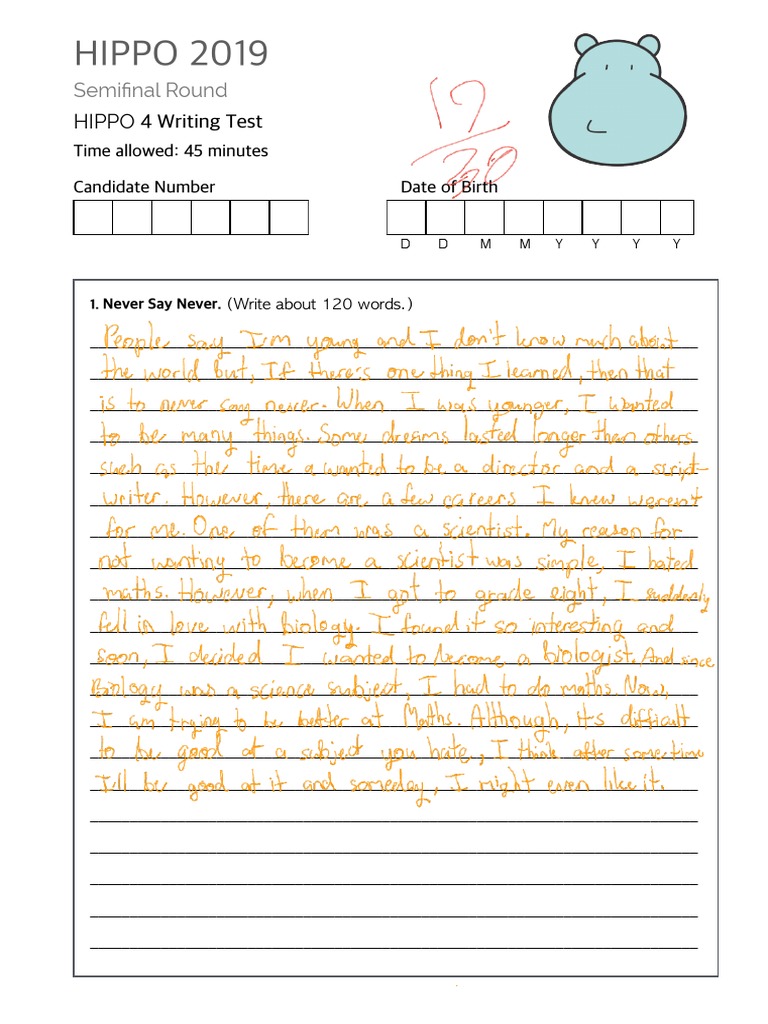 HIPPO 2019
Semifinal Round
HIPPO 4 Writing Test
Time allowed: 45 minutes
17
30
Candidate Number
Date of Birth
D D M M Y Y Y Y
1. Never Say Never. (Write about 120 words.)
People say I'm young and I don't know much about
the world but, If there's one thing I learned, then that
is to never say never. When I was younger, I wanted
to be many things. Some dreams lasted longer than others
such as the time a wanted to be a director and a script
writer. However, there are a few careers I knew weren't
for me. One of them was a scientist. My reason for
not wanting to become a scientist was simple, I hated
maths. However, when I got to grade eight, I suddenly
fell in love with biology. I found it so interesting and
soon, I decided I wanted to become a biologist. And since
Biology was a science subject, I had to do maths. Now,
I am trying to be better at Maths. Although, it's difficult
to be good at a subject you hate, I think after some time
I'll be good at it and someday, I might even like it.